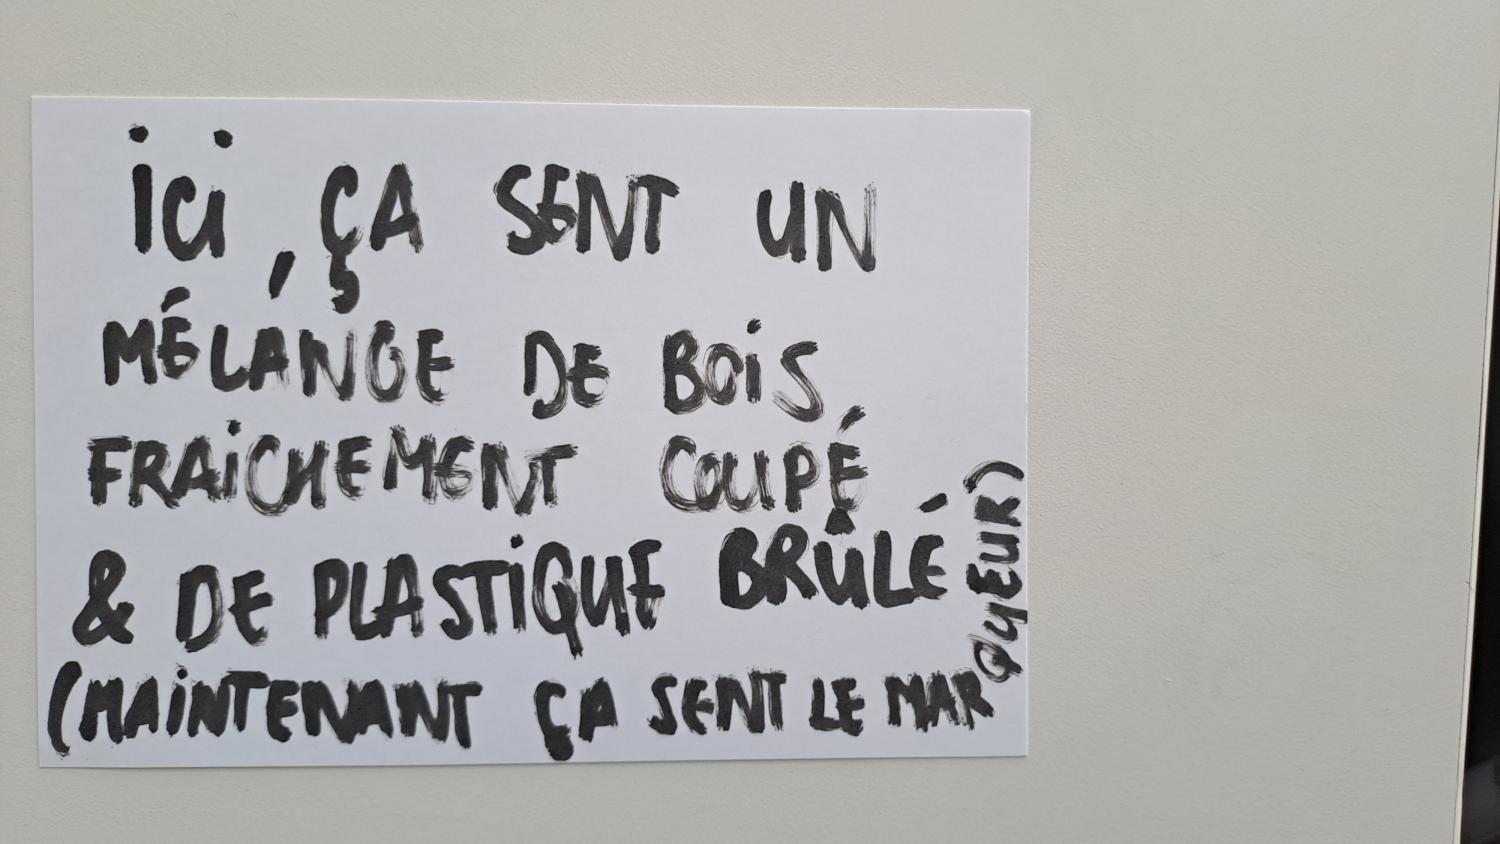 ici, ÇA SENT UN
MÉLANGE DE BOiS
FRAiCHEMENT COUPÉ
& DE PLASTiQUE BRÛLÉ
(MAiNTENANT ÇA SENT LE MARQUEUR)